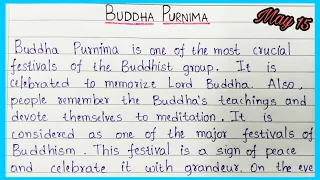 BUDDHA PURNIMA
May 15
Buddha Purnima is one of the most crucial
festivals of the Buddhist group. It is
celebrated to memorize Lord Buddha. Also,
people remember the Buddha's teachings and
devote themselves to meditation. It is
considered as one of the major festivals of
Buddhism. This festival is a sign of peace
and celebrate it with grandeur. On the eve